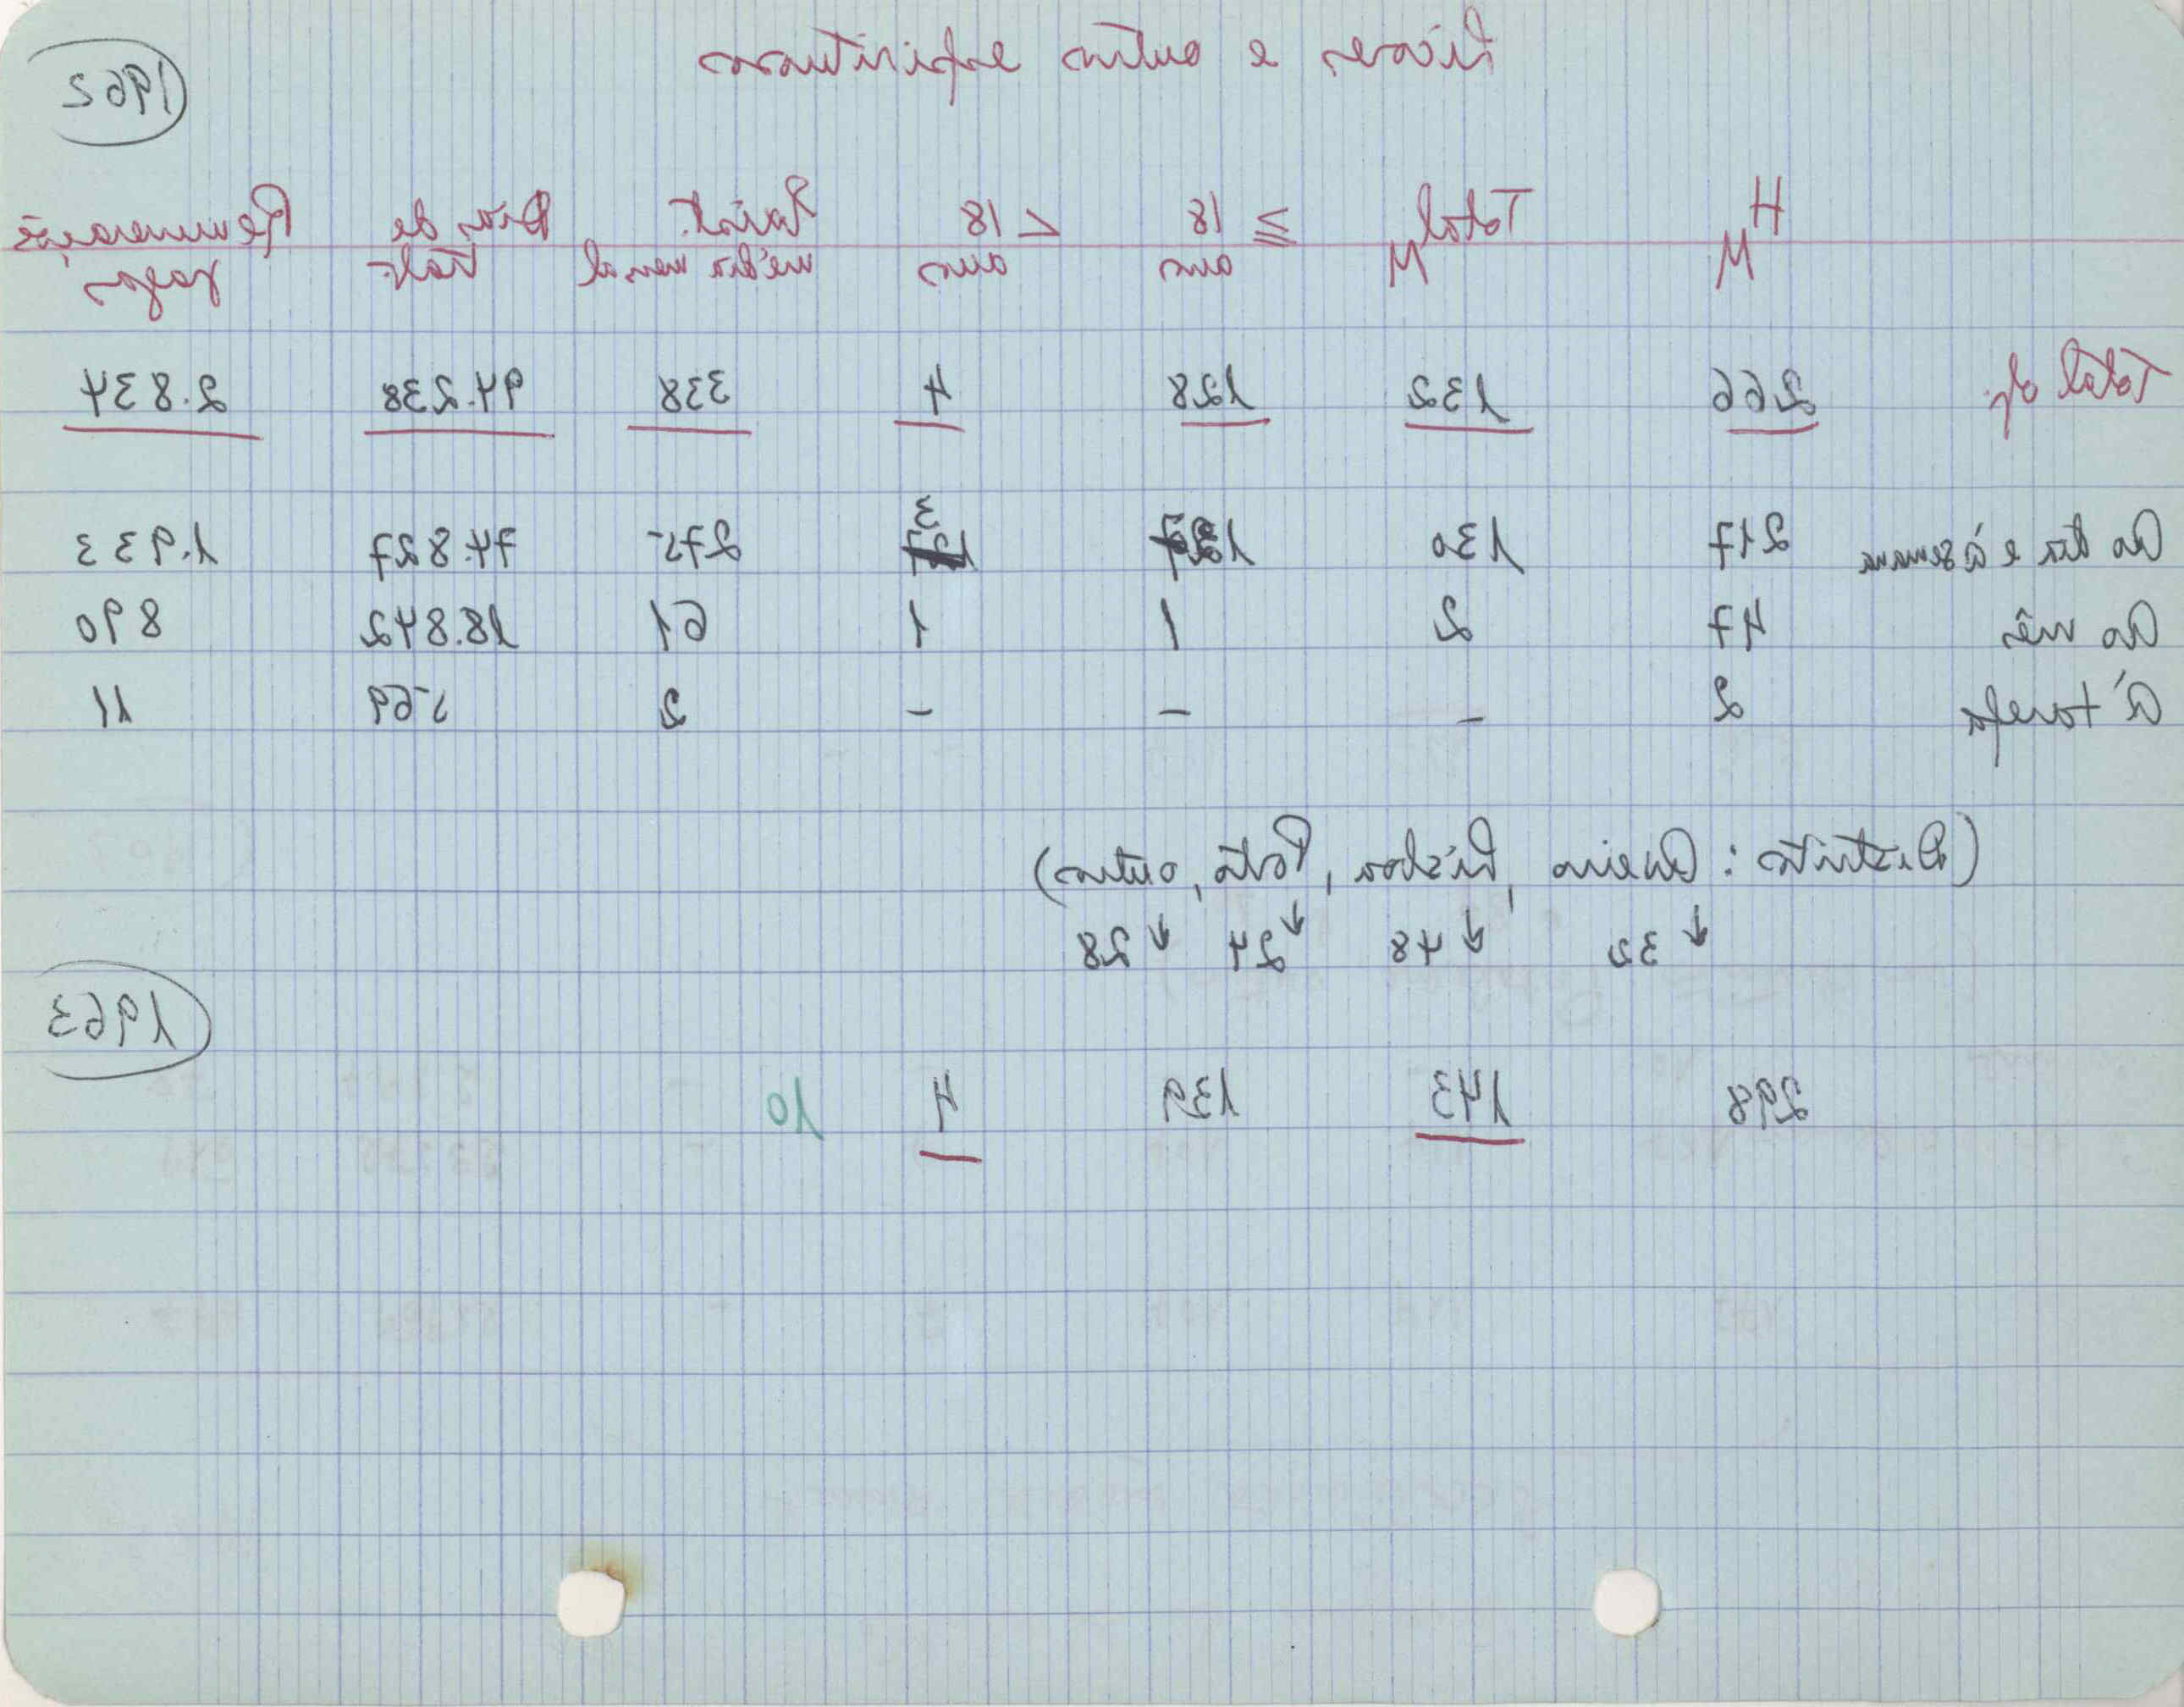 Licores e outros espirituosos
1962
H M Total M ≧ 18 anos < 18 anos Exist. média mensal Dias de trab. Remunerações pagas
Total of. 266 132 128 4 338 94.238 2.834
Ao dia e à semana 217 130 127 3 275 74.827 1.933
Ao mês 47 2 1 1 61 18.842 890
À tarefa 2 - - - 2 569 11
(Distritos: Aveiro, Lisboa, Porto, outros)
↓ 32 ↓ 48 ↓ 24 ↓ 28
1963
298 143 139 4 10